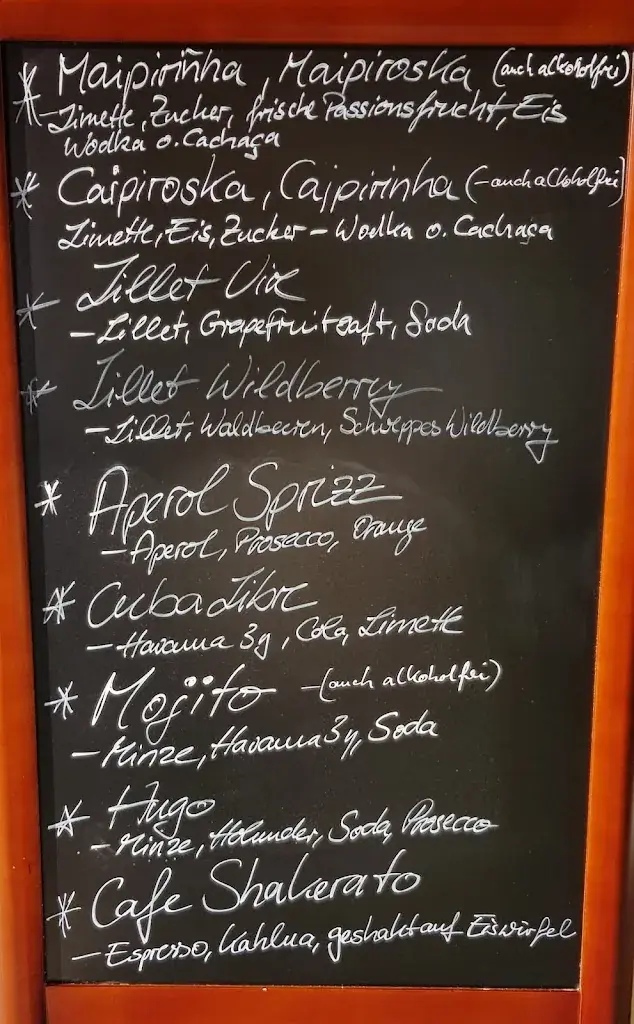 * Maipiriñha, Maipiroska (auch alkoholfrei)
- Limette, Zucker, frische Passionsfrucht, Eis
Wodka o. Cachaça
* Caipiroska, Caipirinha (- auch alkoholfrei)
Limette, Eis, Zucker - Wodka o. Cachaça
* Lillet Vive
- Lillet, Grapefruitsaft, Soda
* Lillet Wildberry
- Lillet, Waldbeeren, Schweppes Wildberry
* Aperol Sprizz
- Aperol, Prosecco, Orange
* Cuba Libre
- Havanna 3y, Cola, Limette
* Mojito - (auch alkoholfrei)
- Minze, Havanna 3y, Soda
* Hugo
- Minze, Holunder, Soda, Prosecco
* Cafe Shakerato
- Espresso, Kahlua, geshakt auf Eiswürfel